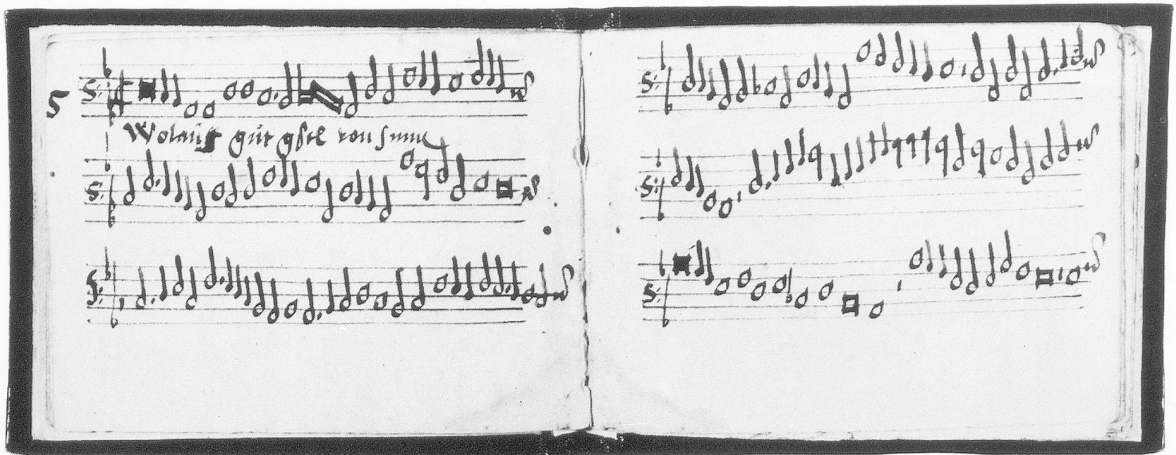 5
Wolauff gůt gsel von hinne